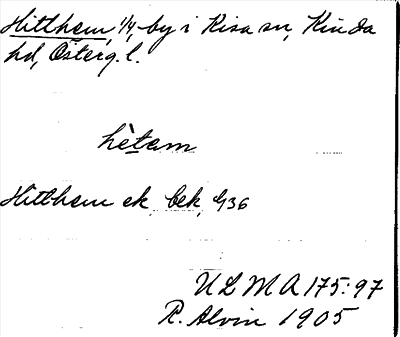 Hitthem, 1/4, by i Kisa sn, Kinda
hd, Österg. l.
hètam
Hitthem ek bek, G36
ULMA 175:97
R. Alvin 1905